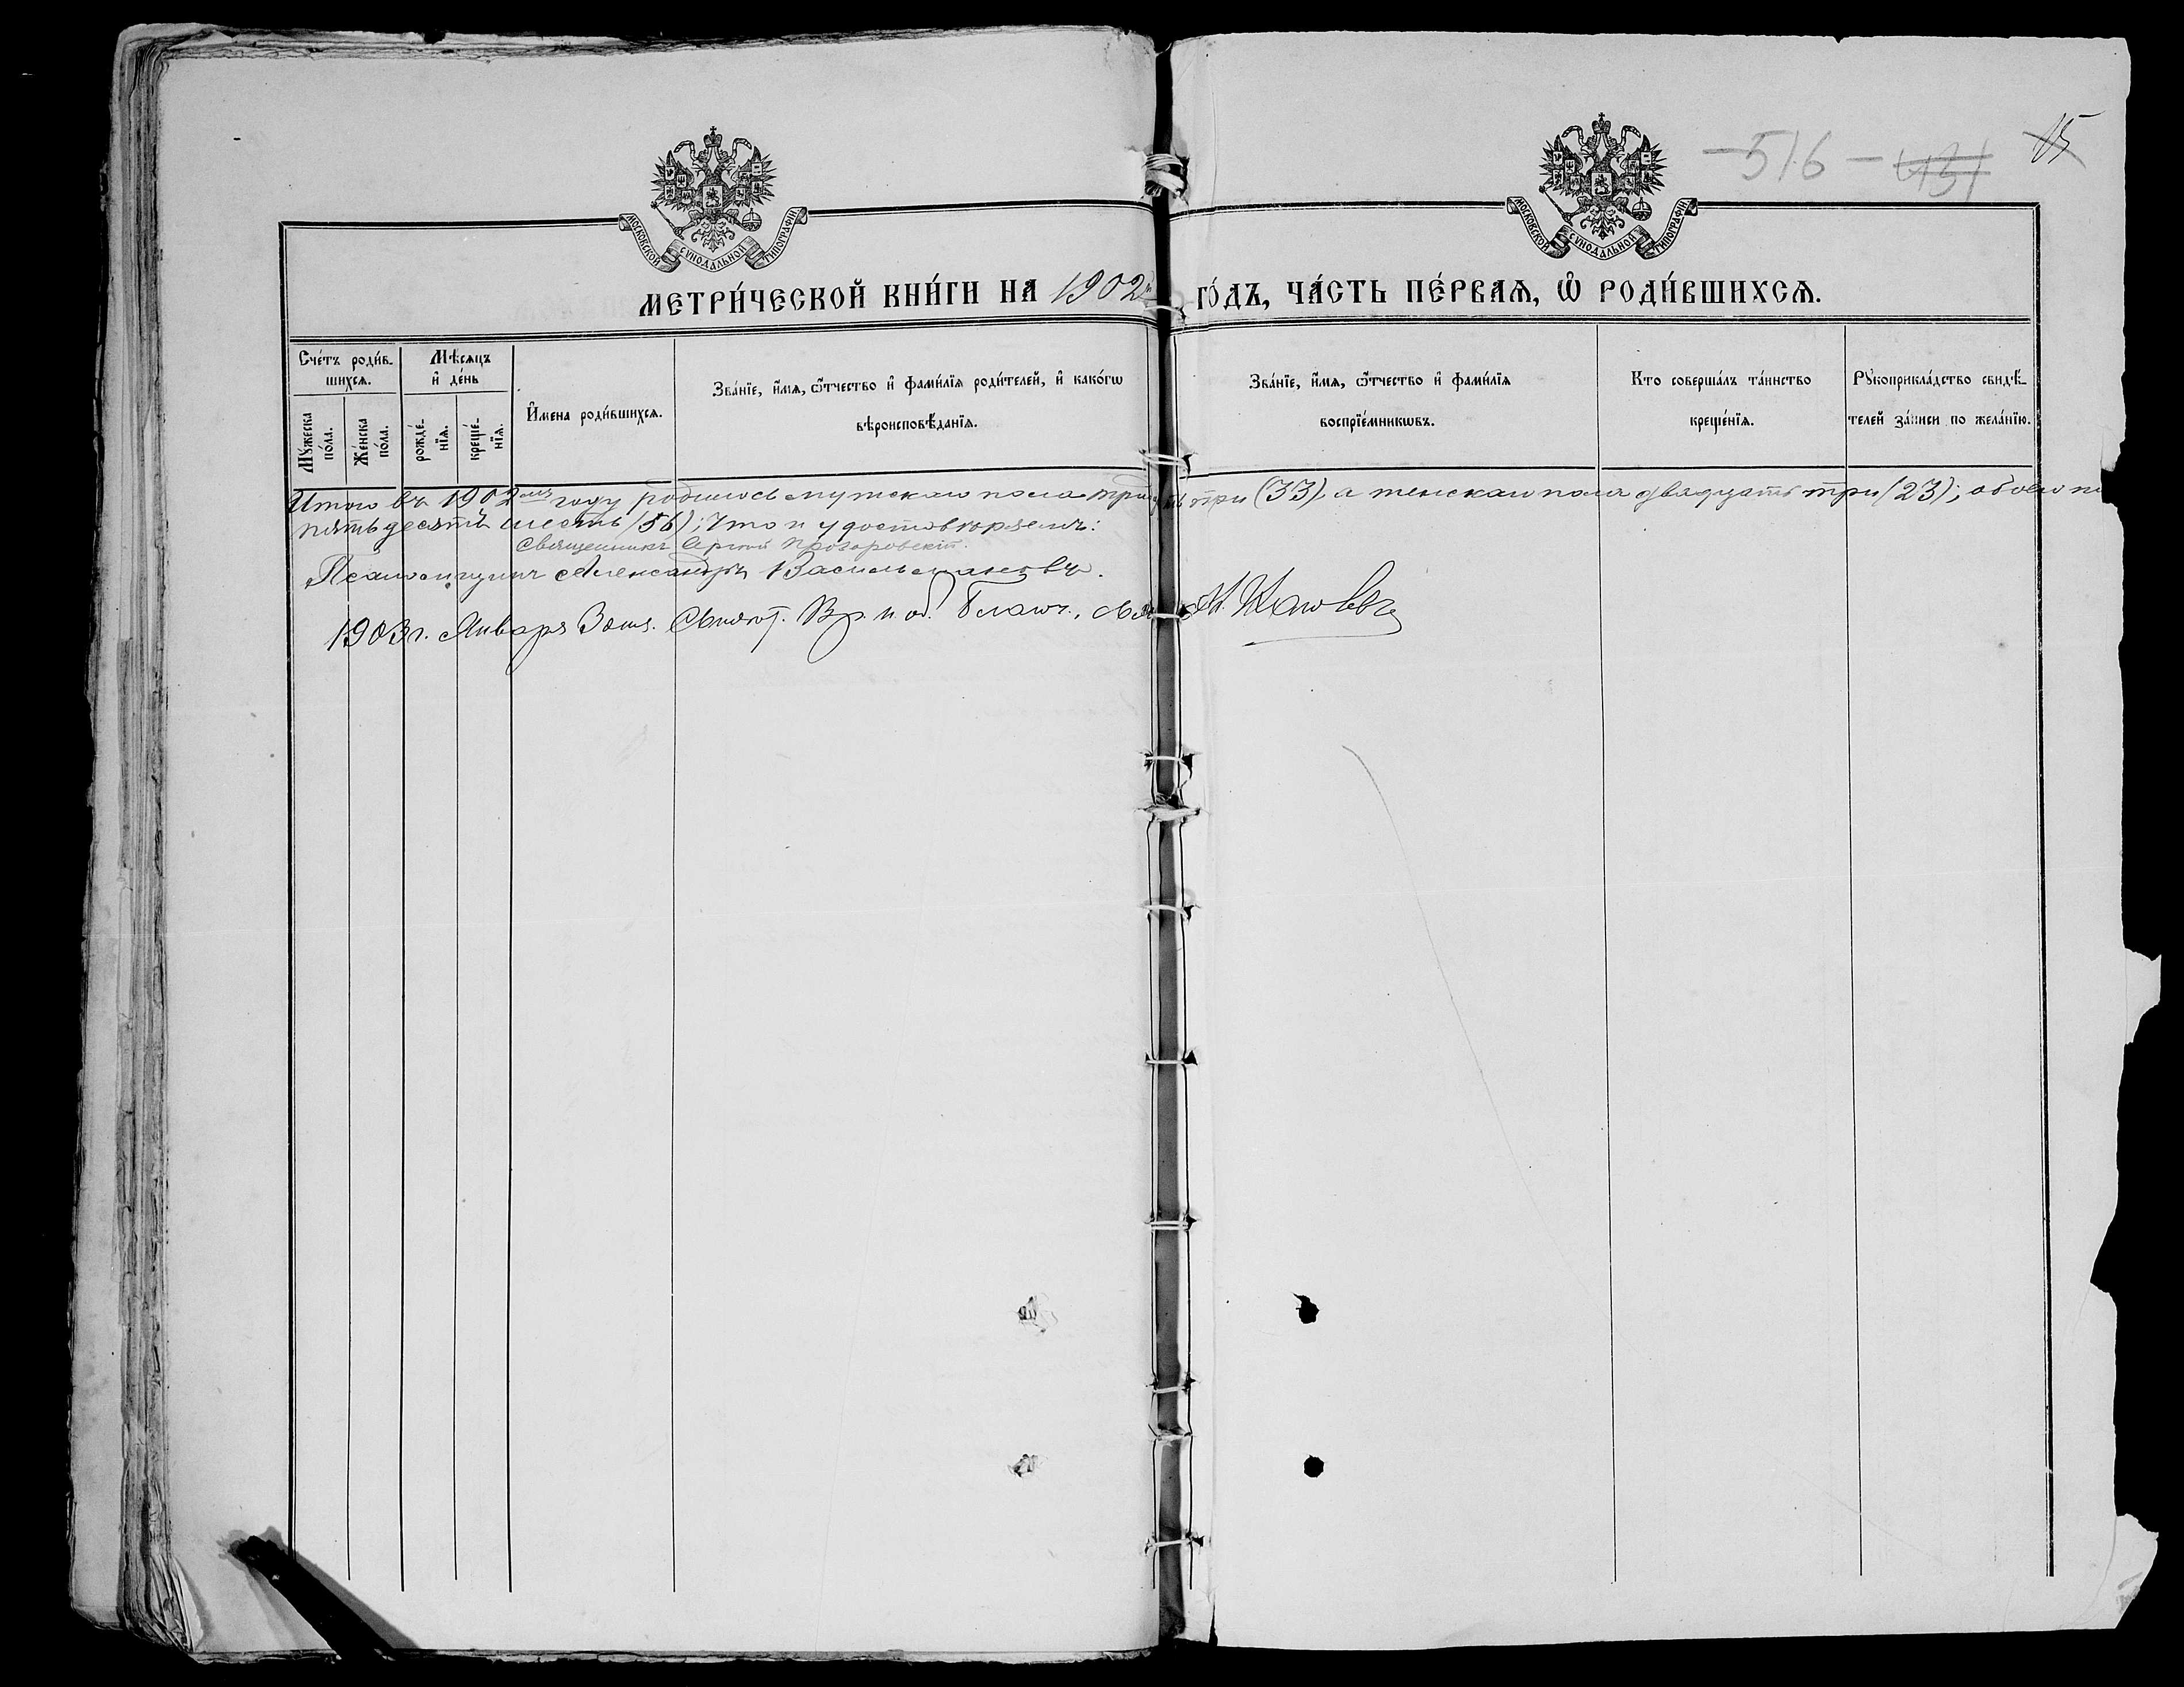 516 131 15
МОСКОВСКОЙ СУНОДАЛЬНОЙ ТИПОГРАФІИ
МОСКОВСКОЙ СУНОДАЛЬНОЙ ТИПОГРАФІИ
МЕТРИ́ЧЕСКОЙ КНИ́ГИ НА 1902й ГО́ДЪ, ЧА́СТЬ ПЕ́РВАѦ, Ѽ РОДИ́ВШИХСѦ.
Сче́тъ роди́в-
шихсѧ.
Мꙋ́жеска
по́ла.
Же́нска
по́ла.
Мѣ́сѧцъ
и҆ де́нь
рожде́-
нїѧ.
креще́-
нїѧ.
И҆́мена роди́вшихсѧ.
Зва́нїе, и҆́мѧ, ѻ҆́тчество и҆ фами́лїѧ роди́телей, и҆ како́гѡ
вѣроисповѣ́данїѧ.
Зва́нїе, и҆́мѧ, ѻ҆́тчество и҆ фами́лїѧ
воспрїе́мникѡвъ.
Кто̀ соверша́лъ та́инство
креще́нїѧ.
Рꙋкоприкла́дство свидѣ́-
телей за́писи по жела́нїю.
Итого въ 1902омъ году родилось мужескаго пола тридцать три (33), а женскаго пола двадцать три (23); обоего по
пятьдесятъ шесть (56); что и удостовѣряемъ:
Священникъ Сергій Прозоровскій.
Псаломщикъ Александръ
1903 г. Января 30 дня. Свидѣт. Вр. и. об. Благоч., свящ.